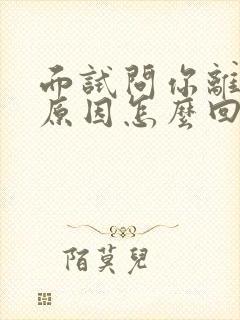 而試問你離
原因怎麼回
陌莫兒